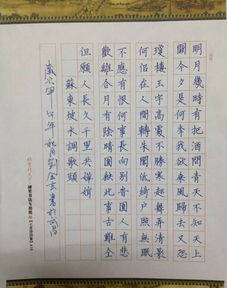 明月幾時有把酒問青天不知天上
宮闕今夕是何年我欲乘風歸去又恐
瓊樓玉宇高處不勝寒起舞弄清影
何似在人間轉朱閣低綺戶照無眠
不應有恨何事長向別時圓人有悲
歡離合月有陰晴圓缺此事古難全
但願人長久千里共嬋娟
蘇東坡水調歌頭